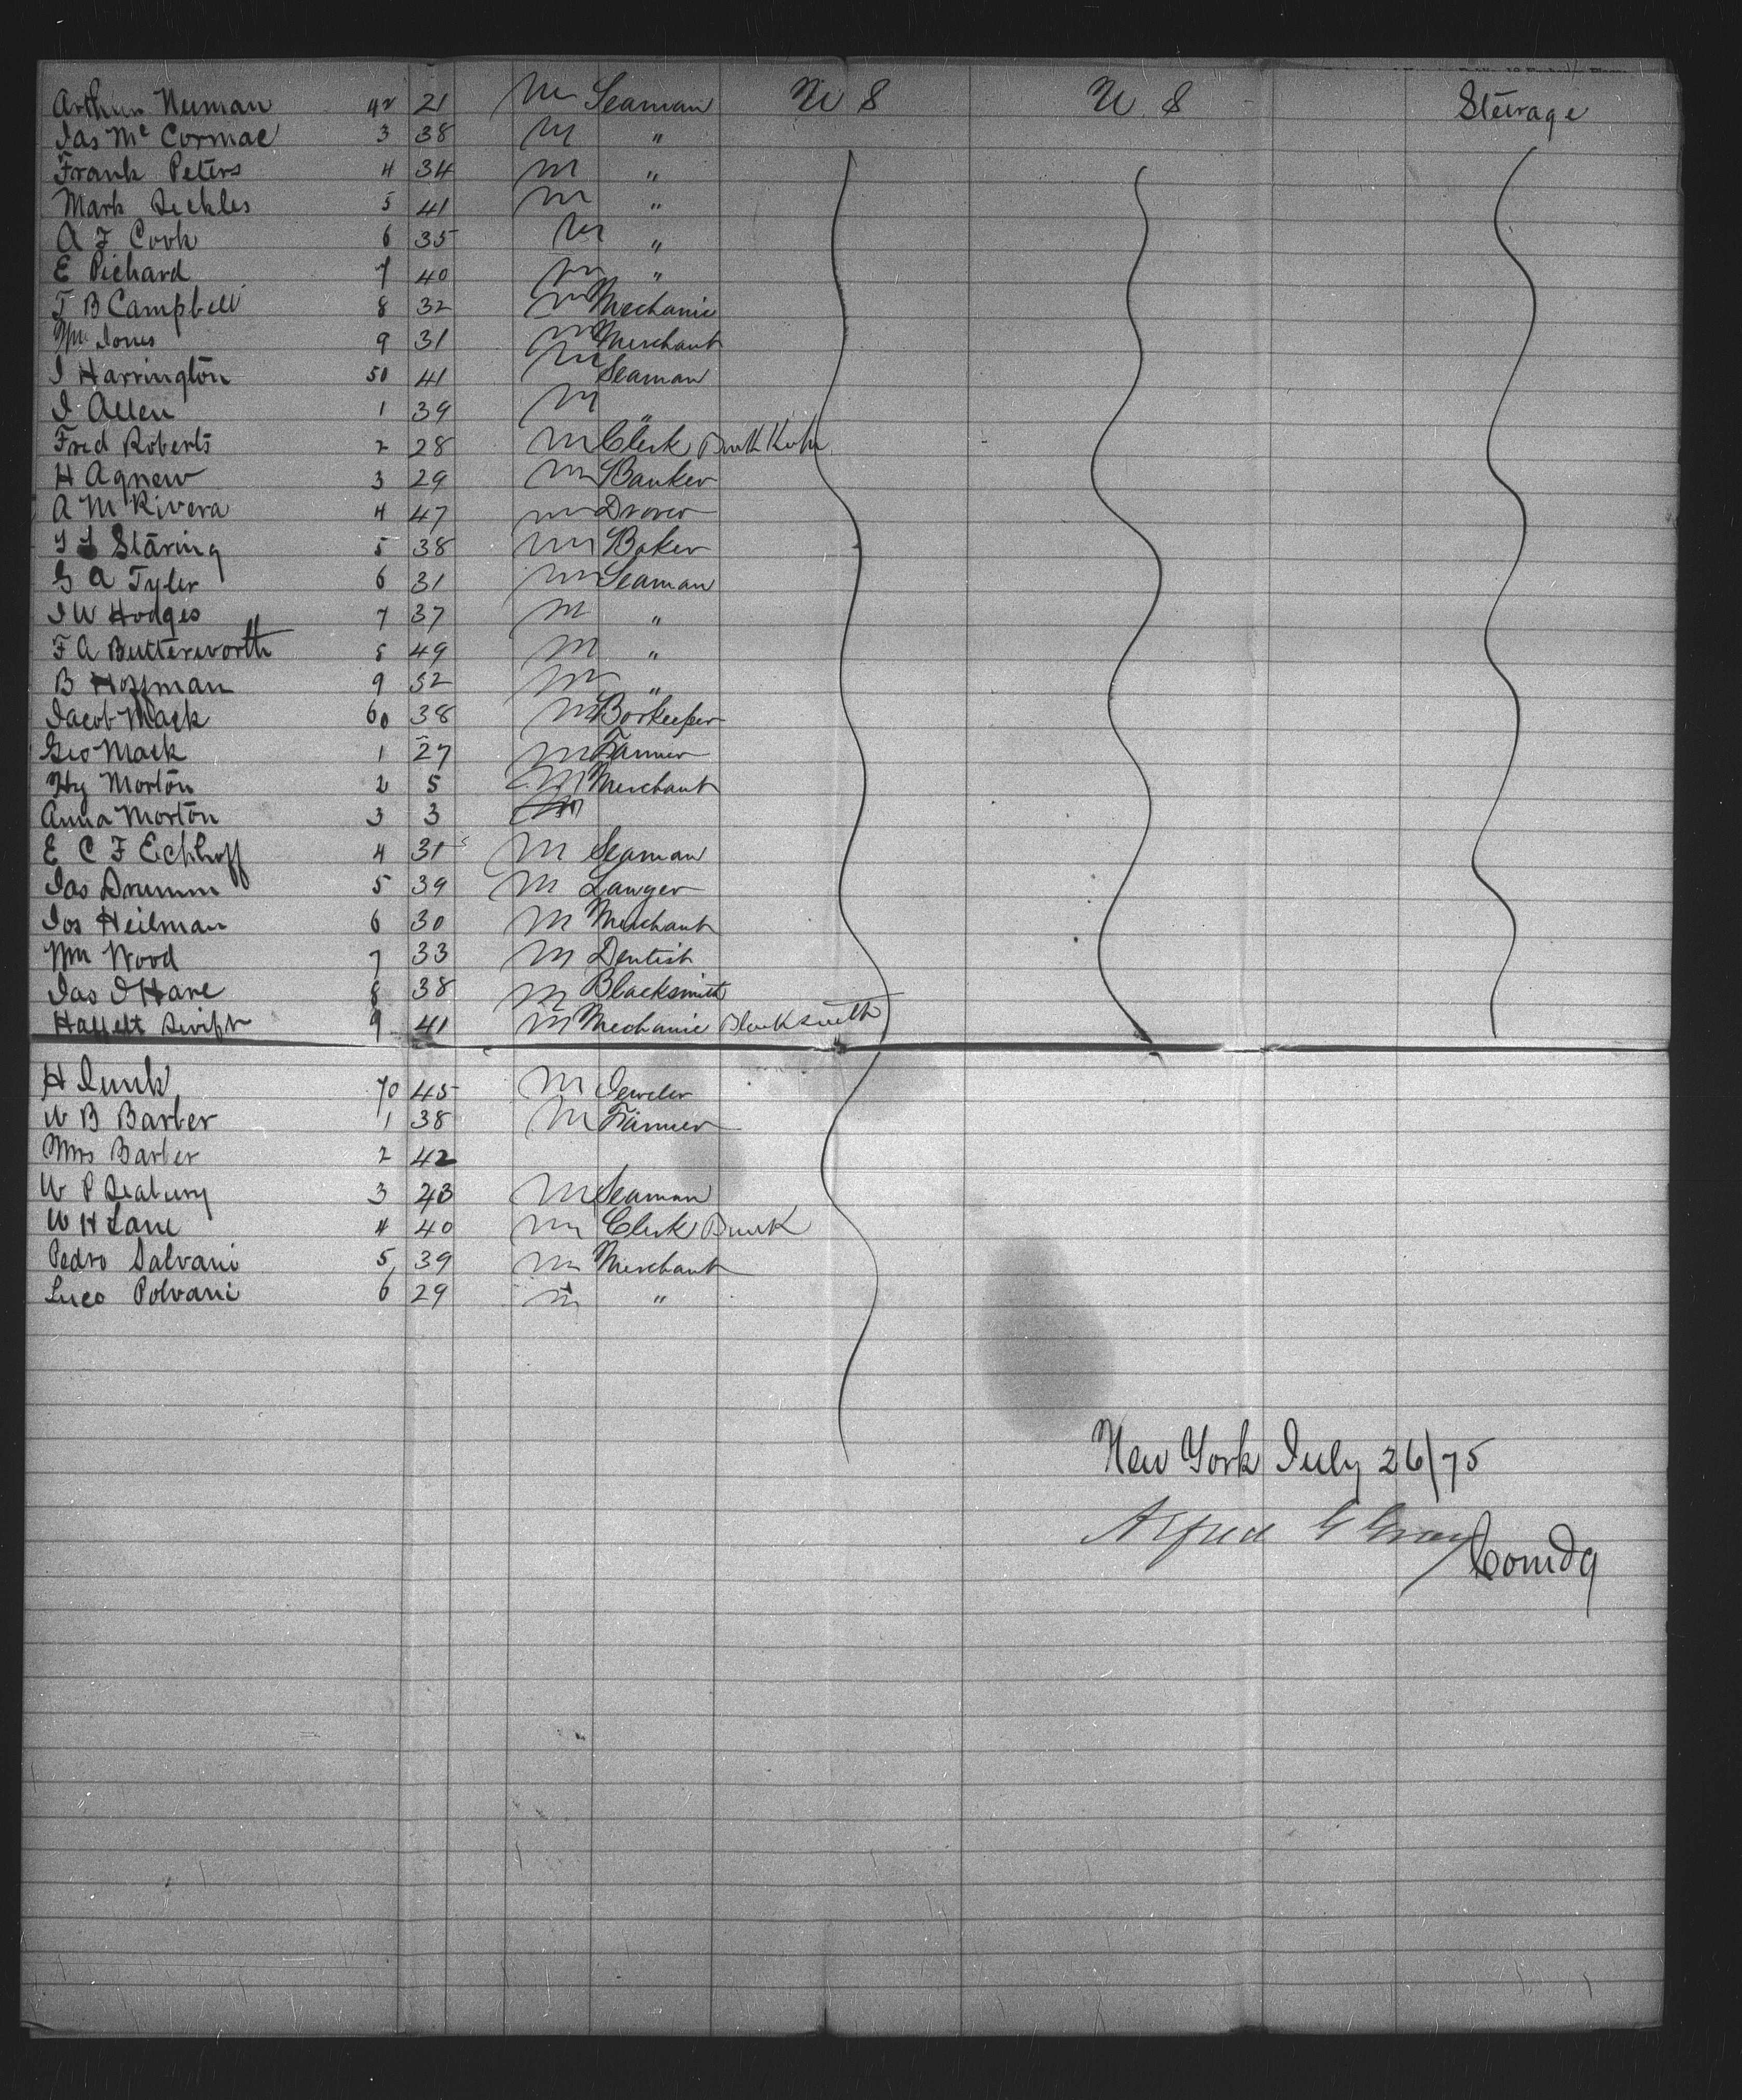 Arthur Neuman 42 21 M Seaman U S U. S Steerage
Jas Mc Cormac 3 38 M "
Frank Peters 4 34 M "
Mark Seckles 5 41 M "
A F Cook 6 35 M "
E Pichard 7 40 M "
T B Campbell 8 32 M Mechanic
Wm Jones 9 31 M Merchant
J Harrington 50 41 M Seaman
J Allen 1 39 M "
Fred Roberts 2 28 M Clerk
H Agnew 3 29 M Banker
A M Rivera 4 47 M Drover
Staring 5 38 M Baker
G A Tyler 6 31 M Seaman
J W Hodges 7 37 M "
F A Butterworth 8 49 M "
B Hoffman 9 52 M "
Jacob Mack 60 38 M Barkeeper
Geo Mack 1 27 M Farmer
Hy Morton 2 5 M Merchant
Anna Morton 3 3
E C F Eickhoff 4 31 M Seaman
Jas Drumm 5 39 M Lawyer
Jos Heilman 6 30 M Merchant
Wm Wood 7 33 M Dentist
Jas J Hare 8 38 M Blacksmith
Swift 9 41 M Mechanic Blacksmith
H Junk 70 45 M Jeweler
W B Barber 1 38 M Farmer
Mrs Barber 2 42
W P Seabury 3 43 M Seaman
W H Lane 4 40 M Clerk
Pedro Salvani 5 39 M Merchant
Luco Polvani 6 29 M "
New York July 26/75
Alfred G Gray
Comdg